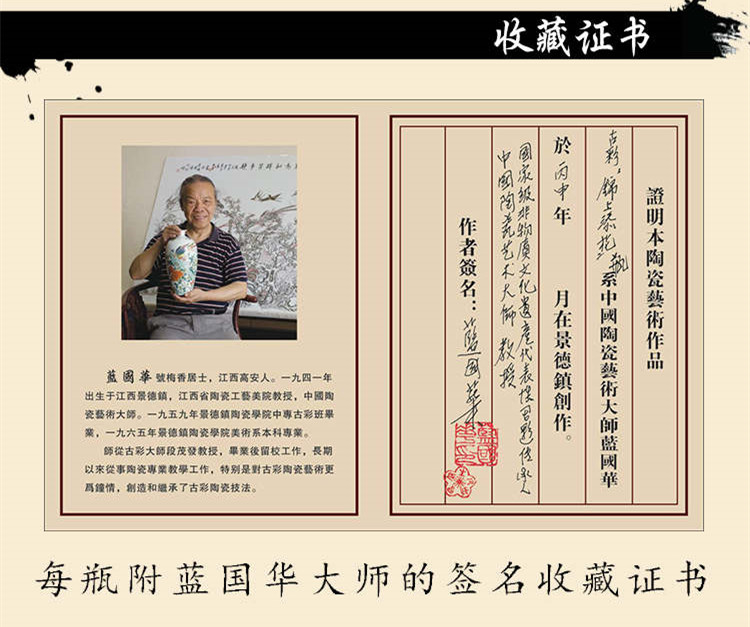 收藏证书
藍國華 號梅香居士，江西高安人。一九四一年
出生于江西景德鎮，江西省陶瓷工藝美院教授，中國陶
瓷藝術大師。一九五九年景德鎮陶瓷學院中專古彩班畢
業，一九六五年景德鎮陶瓷學院美術系本科專業。
師從古彩大師段茂發教授，畢業後留校工作，長期
以來從事陶瓷專業教學工作，特别是對古彩陶瓷藝術更
爲鐘情，創造和繼承了古彩陶瓷技法。
證明本陶瓷藝術作品
古彩：錦上添花瓶系中國陶瓷藝術大師藍國華
於丙申年 月在景德鎮創作。
國家級非物質文化遺產代表性 傳承人
中國陶瓷艺术大師 教授
作者簽名：藍國華
每瓶附蓝国华大师的签名收藏证书